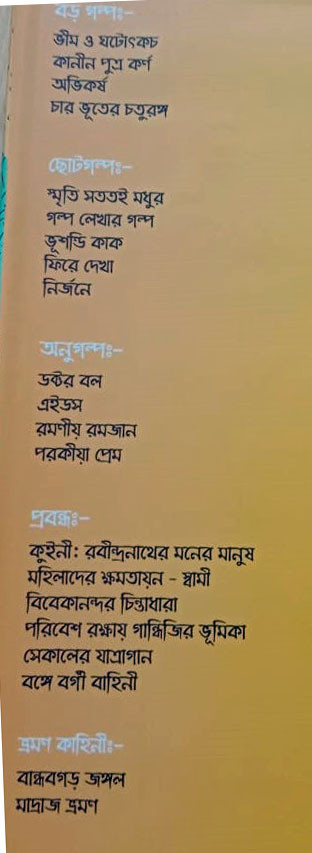 বড় গল্পঃ-
ভীম ও ঘটোৎকচ
কানীন পুত্র কর্ণ
অভিকর্ষ
চার ভূতের চতুরঙ্গ
ছোটগল্পঃ-
স্মৃতি সততই মধুর
গল্প লেখার গল্প
ভূশন্ডি কাক
ফিরে দেখা
নির্জনে
অনুগল্পঃ-
ডক্টর বল
এইডস
রমণীয় রমজান
পরকীয়া প্রেম
প্রবন্ধঃ-
কুইনী: রবীন্দ্রনাথের মনের মানুষ
মহিলাদের ক্ষমতায়ন - স্বামী
বিবেকানন্দর চিন্তাধারা
পরিবেশ রক্ষায় গান্ধিজির ভূমিকা
সেকালের যাত্রাগান
বঙ্গে বর্গী বাহিনী
ভ্রমণ কাহিনীঃ-
বান্ধবগড় জঙ্গল
মাদ্রাজ ভ্রমণ